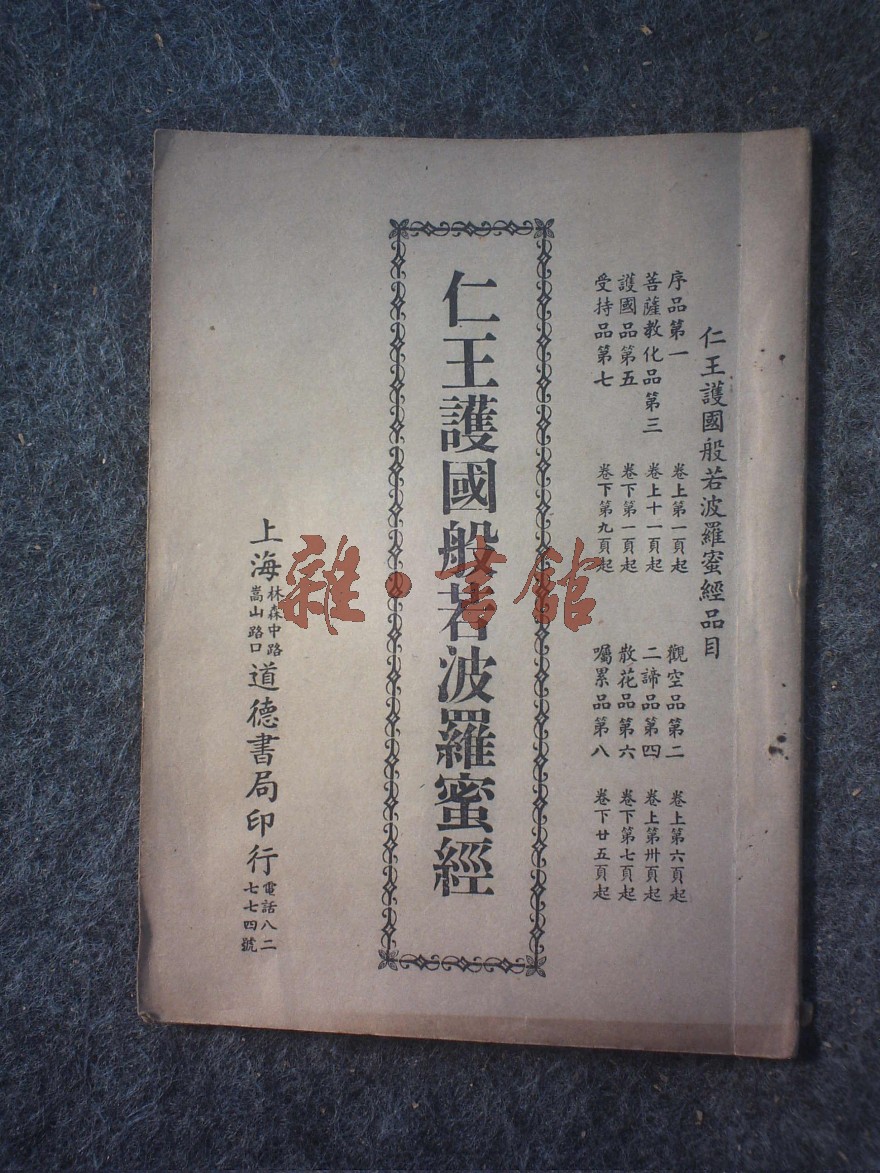 仁王護國般若波羅蜜經品目
序品第一 卷上第一頁起 觀空品第二 卷上第六頁起
菩薩教化品第三 卷上十一頁起 二諦品第四 卷上第卅頁起
護國品第五 卷下第一頁起 散花品第六 卷下第七頁起
受持品第七 卷下第九頁起 囑累品第八 卷下廿五頁起
仁王護國般若波羅蜜經
上海林森中路嵩山路口道德書局印行電話八二七七四號
雜·書館